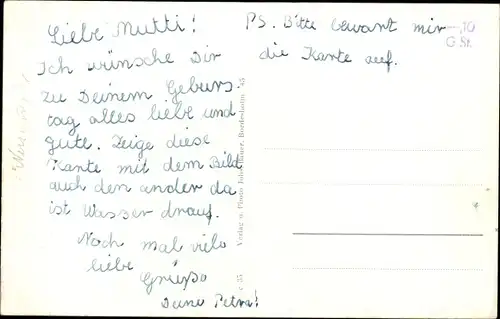 Liebe Mutti!
Ich wünsche Dir
zu Deinem Geburs-
tag alles liebe und
gute. Zeige diese
Kante mit dem Bild
auch den ander da
ist Wasser drauf.
Noch mal viele
liebe
Grüße
Deine Petra!
PS. Bitte bewart mir
die Karte auf.
-,10
G.St.
Verlag u. Photo Bauer,